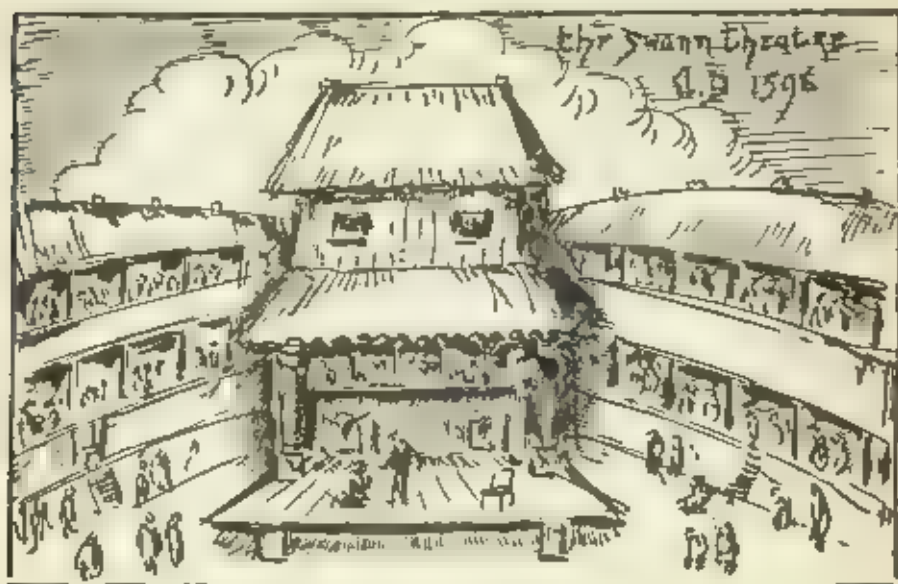 the Swann theatre
A.D 1596